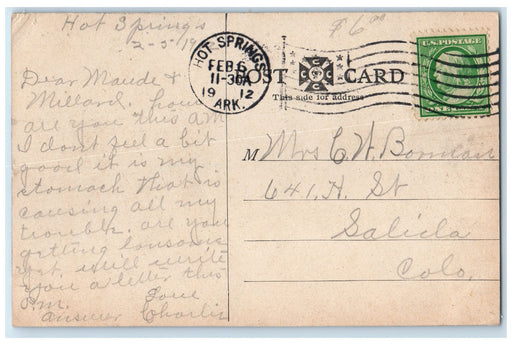 Hot Springs
2-5-19
$6.00
HOT SPRINGS
FEB 6
11-30A
19 12
ARK.
U.S. POSTAGE
POST CARD
This side for address
Dear Maude &
Millard. how
are you this A.M.
I dont feel a bit
good it is my
stomach that is
causing all my
trouble. are you
getting lonsome
yet. will write
you a letter this
P.M.
Love
answer Charlie
M Mrs C W Bowman
641. H. St
Salida
Colo.